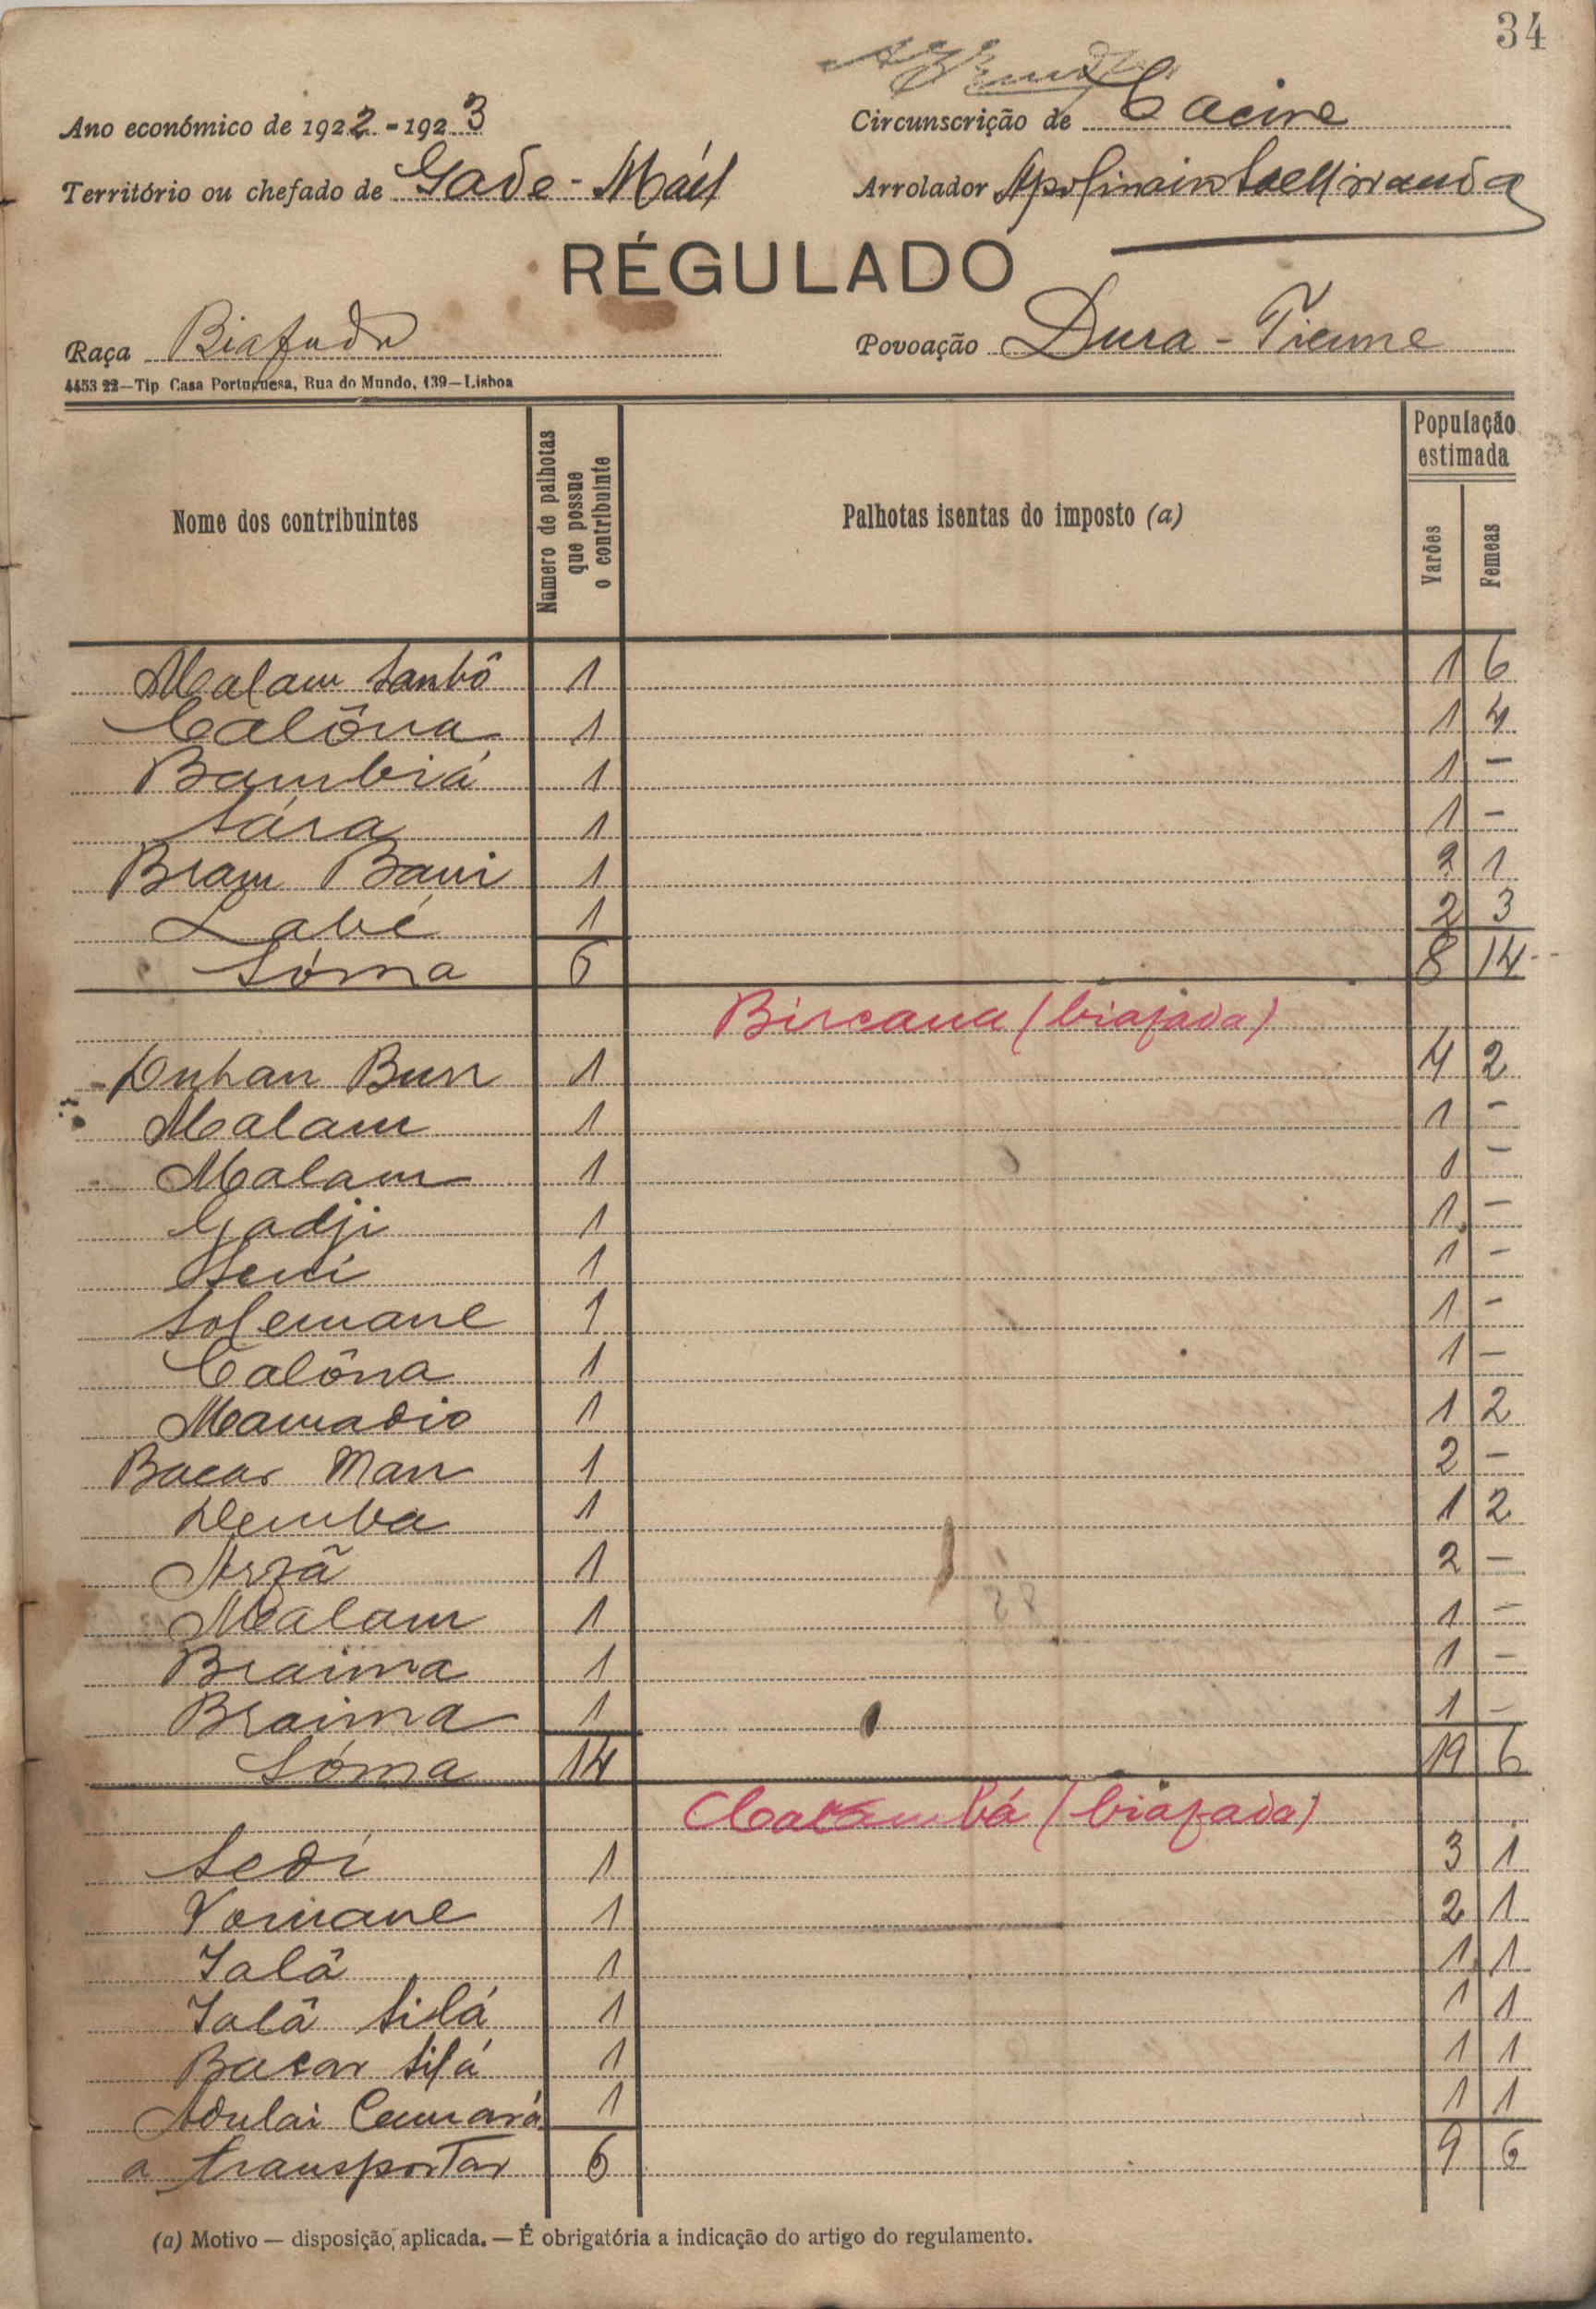 34
Ano económico de 1922-1923
Circunscrição de Cacine
Território ou chefado de Gade-Máel
Arrolador
RÉGULADO
Raça Biafada
Povoação Dura-Tieme
4453 22—Tip. Casa Portuguesa, Rua do Mundo, 139—Lisboa
Nome dos contribuintes
Número de palhotas que possue o contribuinte
Palhotas isentas do imposto (a)
População estimada
Varões Femeas
Malam Sanbô 1 1 6
Calôna 1 1 4
Bambiá 1 1 -
Sára 1 1 -
Bram Bani 1 2 1
Labé 1 2 3
Sóma 6 8 14
Bircana (biafada)
Bun 1 4 2
Malam 1 1 -
Malam 1 1 -
Gadji 1 1 -
Seni 1 1 -
Solemane 1 1 -
Calôna 1 1 -
Mamadio 1 1 2
Bacar Man 1 2 -
Demba 1 1 2
Arfã 1 2 -
Malam 1 1 -
Braima 1 1 -
Braima 1 1 -
Sóma 14 19 6
Catambá (biafada)
Sedi 1 3 1
Vomane 1 2 1
Ialâ 1 1 1
Ialâ Silá 1 1 1
Bacar Silá 1 1 1
Adulai Camará 1 1 1
a transportar 6 9 6
(a) Motivo — disposição aplicada. — É obrigatória a indicação do artigo do regulamento.